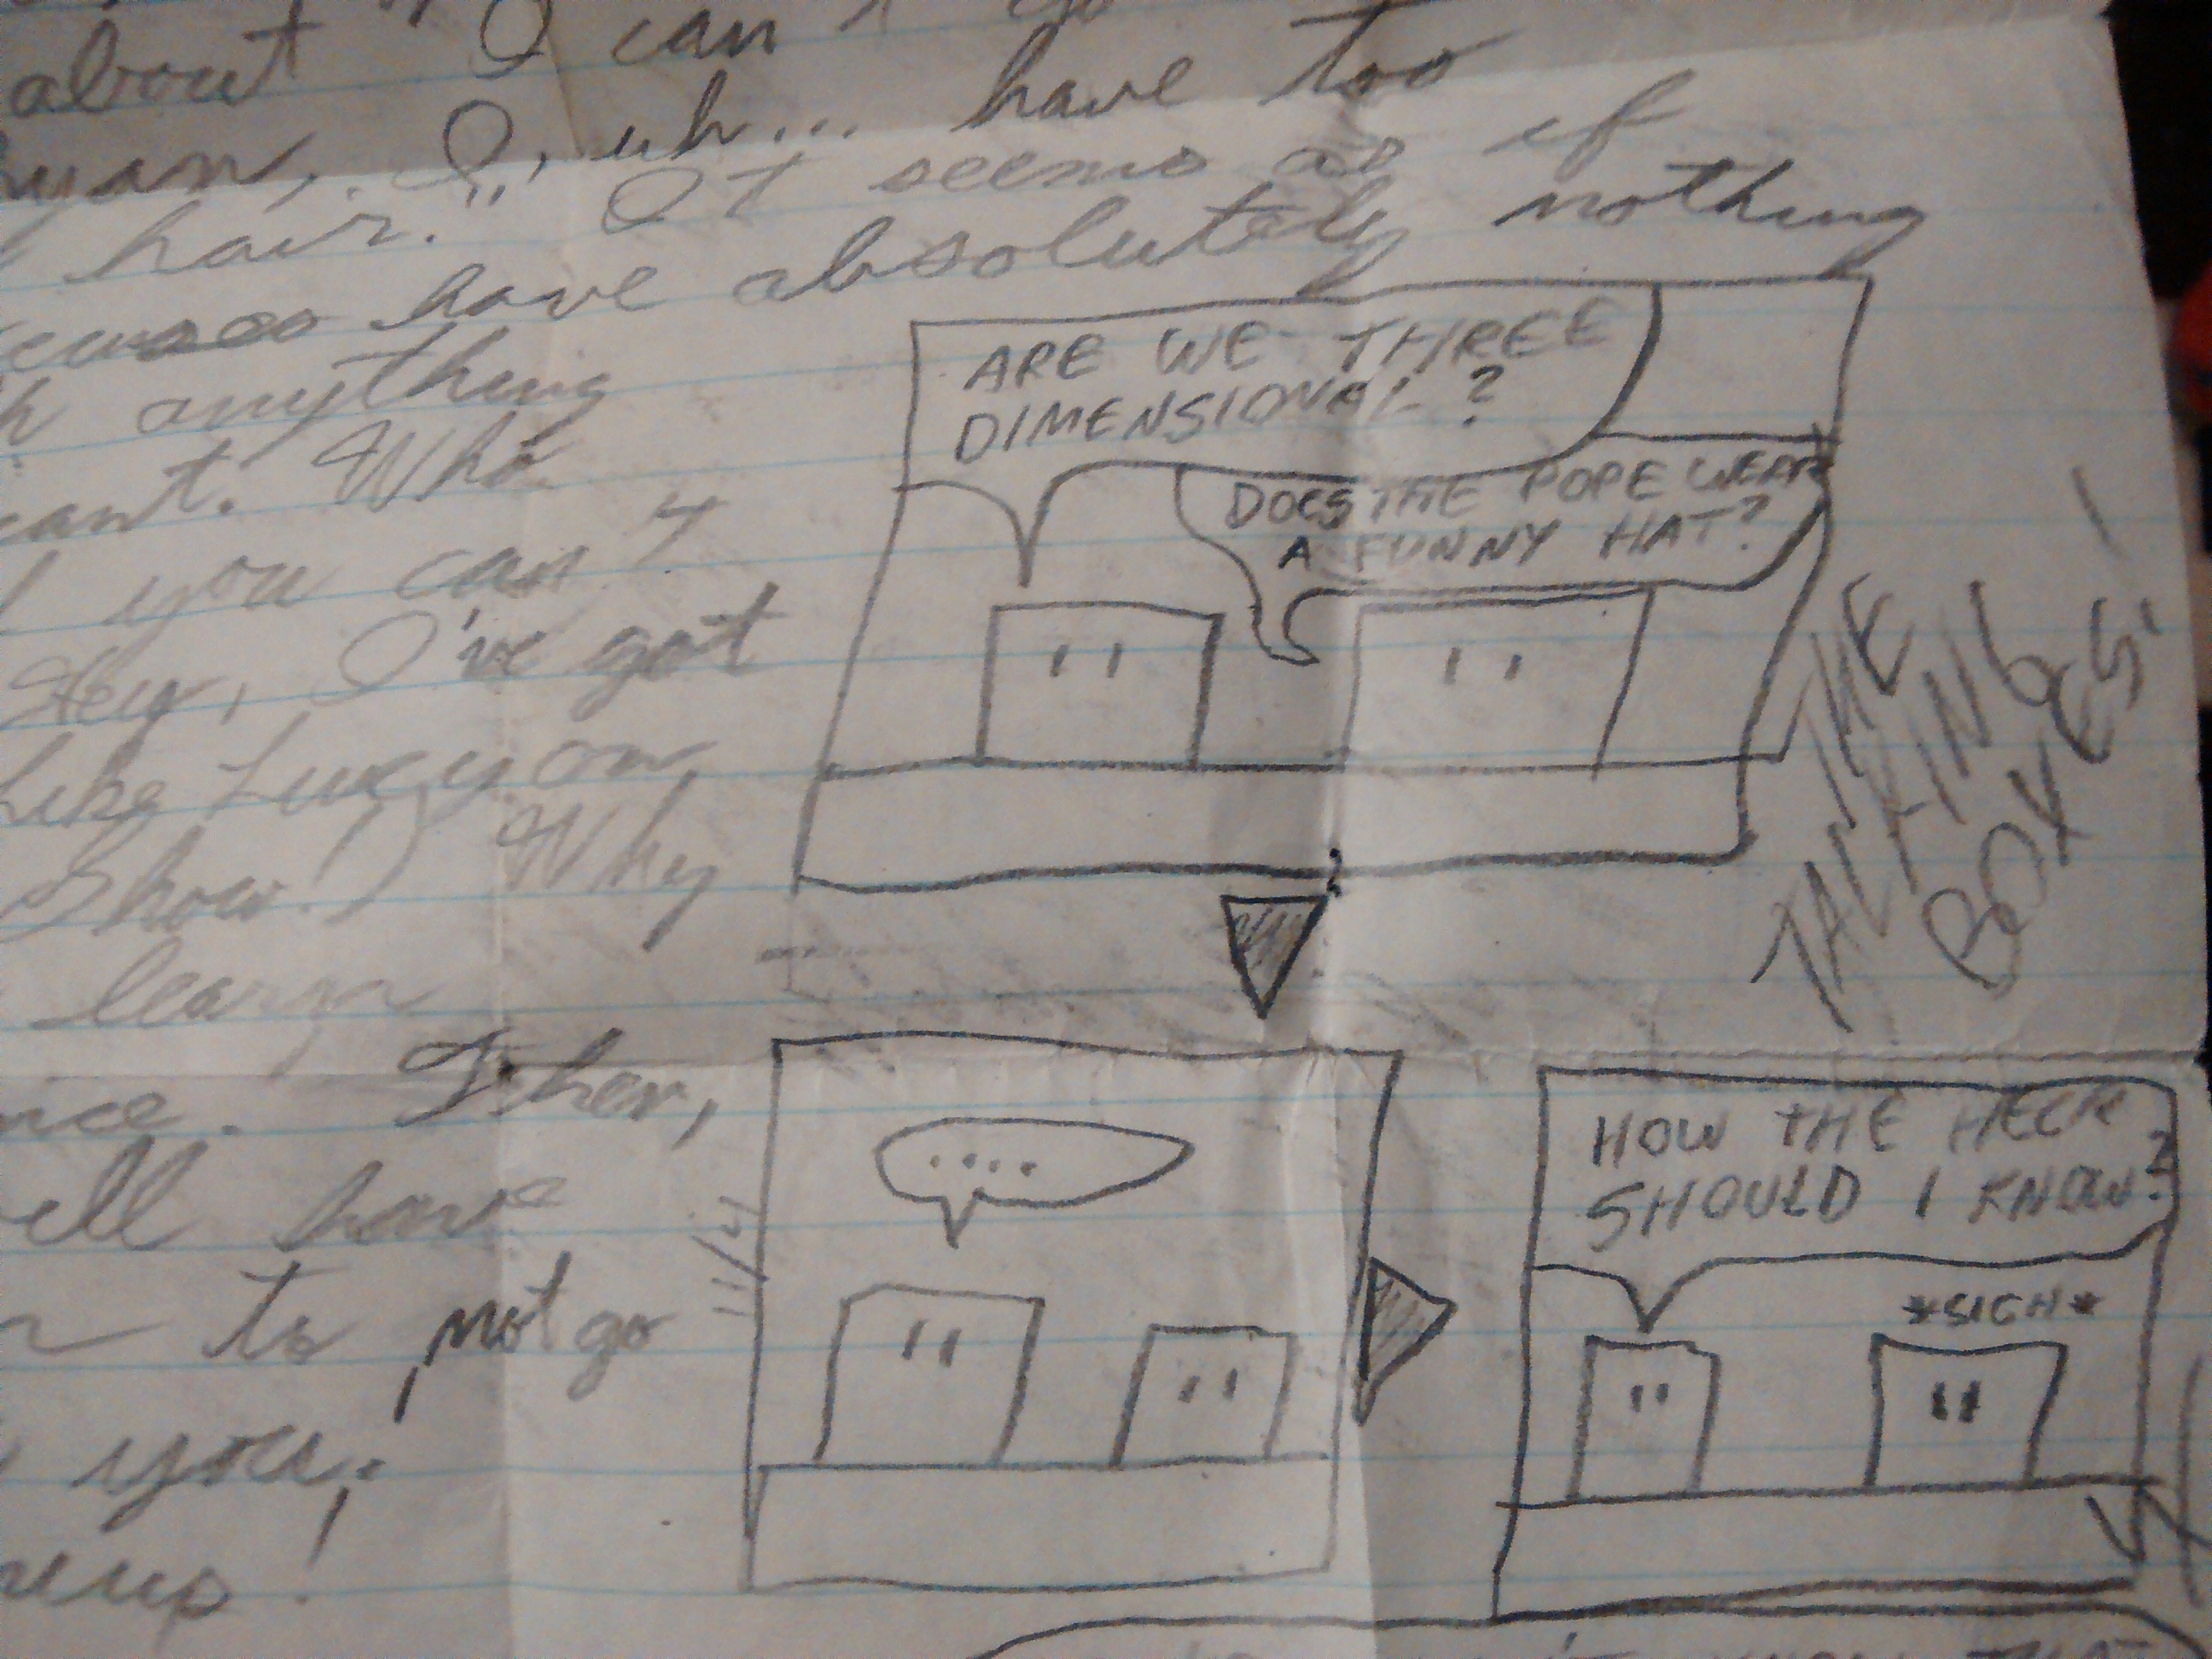 about "I can't go
I, uh... have too
hair." It seems as if
have absolutely nothing
anything
Who
you can?
Hey, I've got
Like Lucy on
Show!) Why
learn
Then,
have
to not go
you!
ARE WE THREE
DIMENSIONAL?
DOES THE POPE WEAR
A FUNNY HAT?
THE
TALKING
BOXES!
....
11/4
HOW THE HECK
SHOULD I KNOW?
*SIGH*